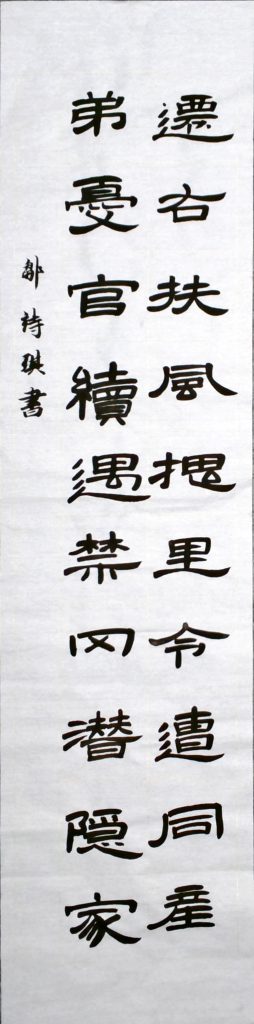 遷右扶風槐里令遭同產
弟憂官續遇禁冈潛隱家
鄒詩琪書